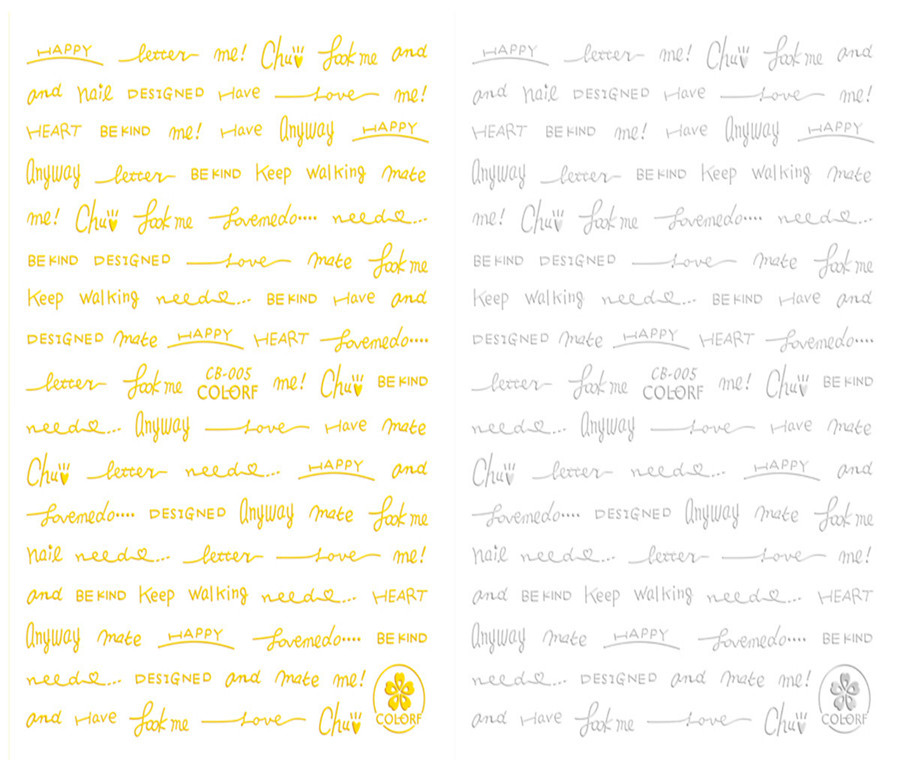 HAPPY letter me! Chu Look me and
and nail DESIGNED Have Love me!
HEART BE KIND me! Have Anyway HAPPY
Anyway letter BE KIND Keep walking mate
me! Chu Look me Lovemedo.... need...
BE KIND DESIGNED Love mate Look me
Keep walking need... BE KIND Have and
DESIGNED mate HAPPY HEART Lovemedo....
letter Look me CB-005 COLORF me! Chu BE KIND
need... Anyway Love Have mate
Chu letter need... HAPPY and
Lovemedo.... DESIGNED Anyway mate Look me
nail need... letter Love me!
and BE KIND Keep walking need... HEART
Anyway mate HAPPY Lovemedo.... BE KIND
need... DESIGNED and mate me!
and Have Look me Love Chu COLORF
HAPPY letter me! Chu Look me and
and nail DESIGNED Have Love me!
HEART BE KIND me! Have Anyway HAPPY
Anyway letter BE KIND Keep walking mate
me! Chu Look me Lovemedo.... need...
BE KIND DESIGNED Love mate Look me
Keep walking need... BE KIND Have and
DESIGNED mate HAPPY HEART Lovemedo....
letter Look me CB-005 COLORF me! Chu BE KIND
need... Anyway Love Have mate
Chu letter need... HAPPY and
Lovemedo.... DESIGNED Anyway mate Look me
nail need... letter Love me!
and BE KIND Keep walking need... HEART
Anyway mate HAPPY Lovemedo.... BE KIND
need... DESIGNED and mate me!
and Have Look me Love Chu COLORF